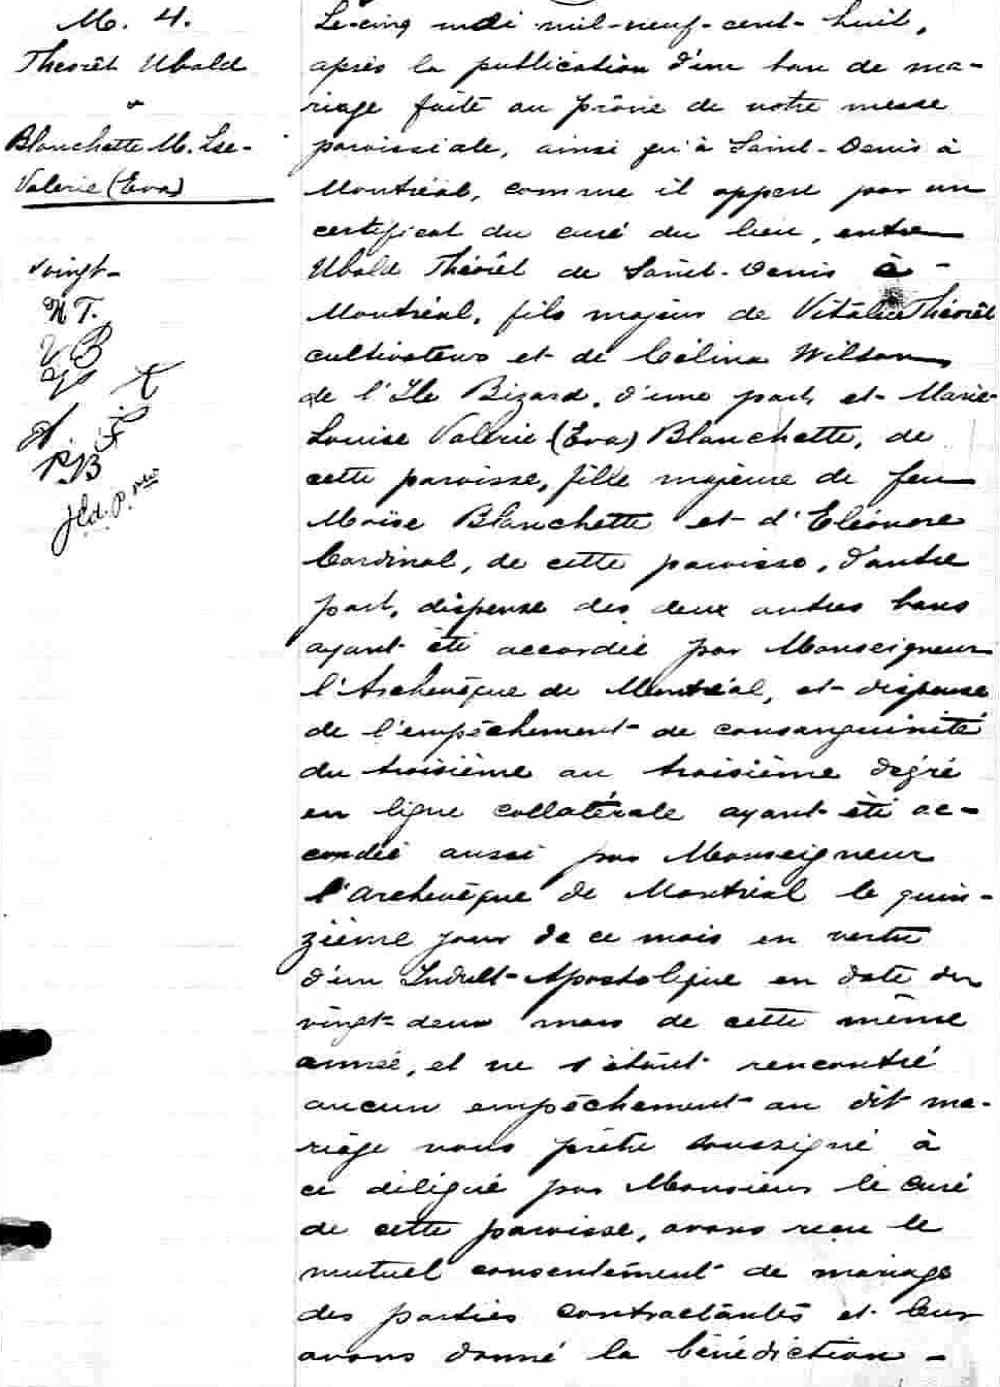 M. 4.
Théorêt Ubald
&
Blanchette M. Lse-
Valérie (Eva)
vingt-
U T.
V B
A.
P. B
J Ed. P. ptre
Le cinq mai mil-neuf-cent-huit,
après la publication d'un ban de ma-
riage faite au prône de notre messe
paroissiale, ainsi qu'à Saint-Denis à
Montréal, comme il appert par un
certificat du curé du lieu, entre
Ubald Théorêt de Saint-Denis à -
Montréal, fils majeur de Vital Théorêt
cultivateur et de Célina Wilson
de l'Ile Bizard, d'une part, et Marie-
Louise Valérie (Eva) Blanchette, de
cette paroisse, fille majeure de feu
Moïse Blanchette et d'Eléonore
Cardinal, de cette paroisse, d'autre
part, dispense des deux autres bans
ayant été accordée par Monseigneur
l'Archevêque de Montréal, et dispense
de l'empêchement de consanguinité
du troisième au troisième degré
en ligne collatérale ayant été ac-
cordée aussi par Monseigneur
l'Archevêque de Montréal le quin-
zième jour de ce mois en vertu
d'un Indult-Apostolique en date du
vingt-deux mars de cette même
année, et ne s'étant rencontré
aucun empêchement au dit ma-
riage nous prêtre soussigné à
ce délégué par Monsieur le curé
de cette paroisse, avons reçu le
mutuel consentement de mariage
des parties contractantes et leur
avons donné la bénédiction -